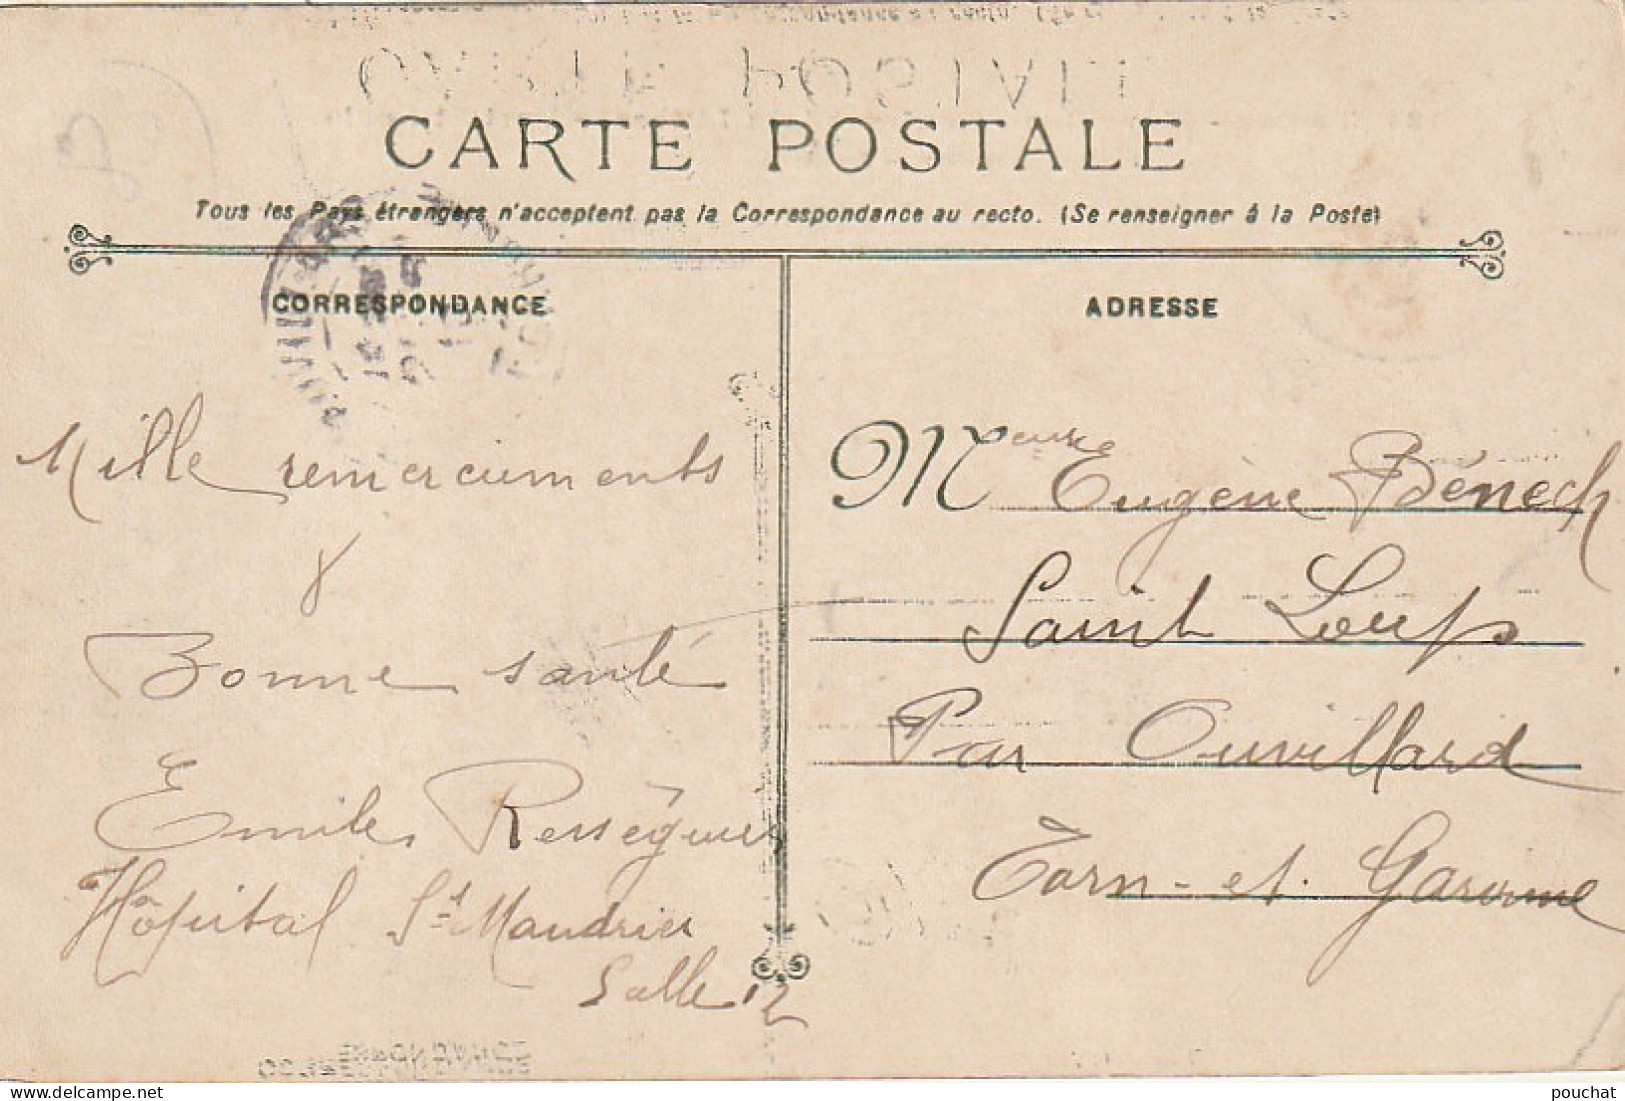 CARTE POSTALE
Tous les Pays étrangers n'acceptent pas la Correspondance au recto. (Se renseigner à la Poste)
CORRESPONDANCE
ADRESSE
Mille remerciements
&
Bonne santé
Emile Rességuier
Hôpital St Mandrier
Salle 12
Monsieur Eugène Bénech
Saint Loup
Par Ouvillard
Tarn-et-Garonne
pouchat